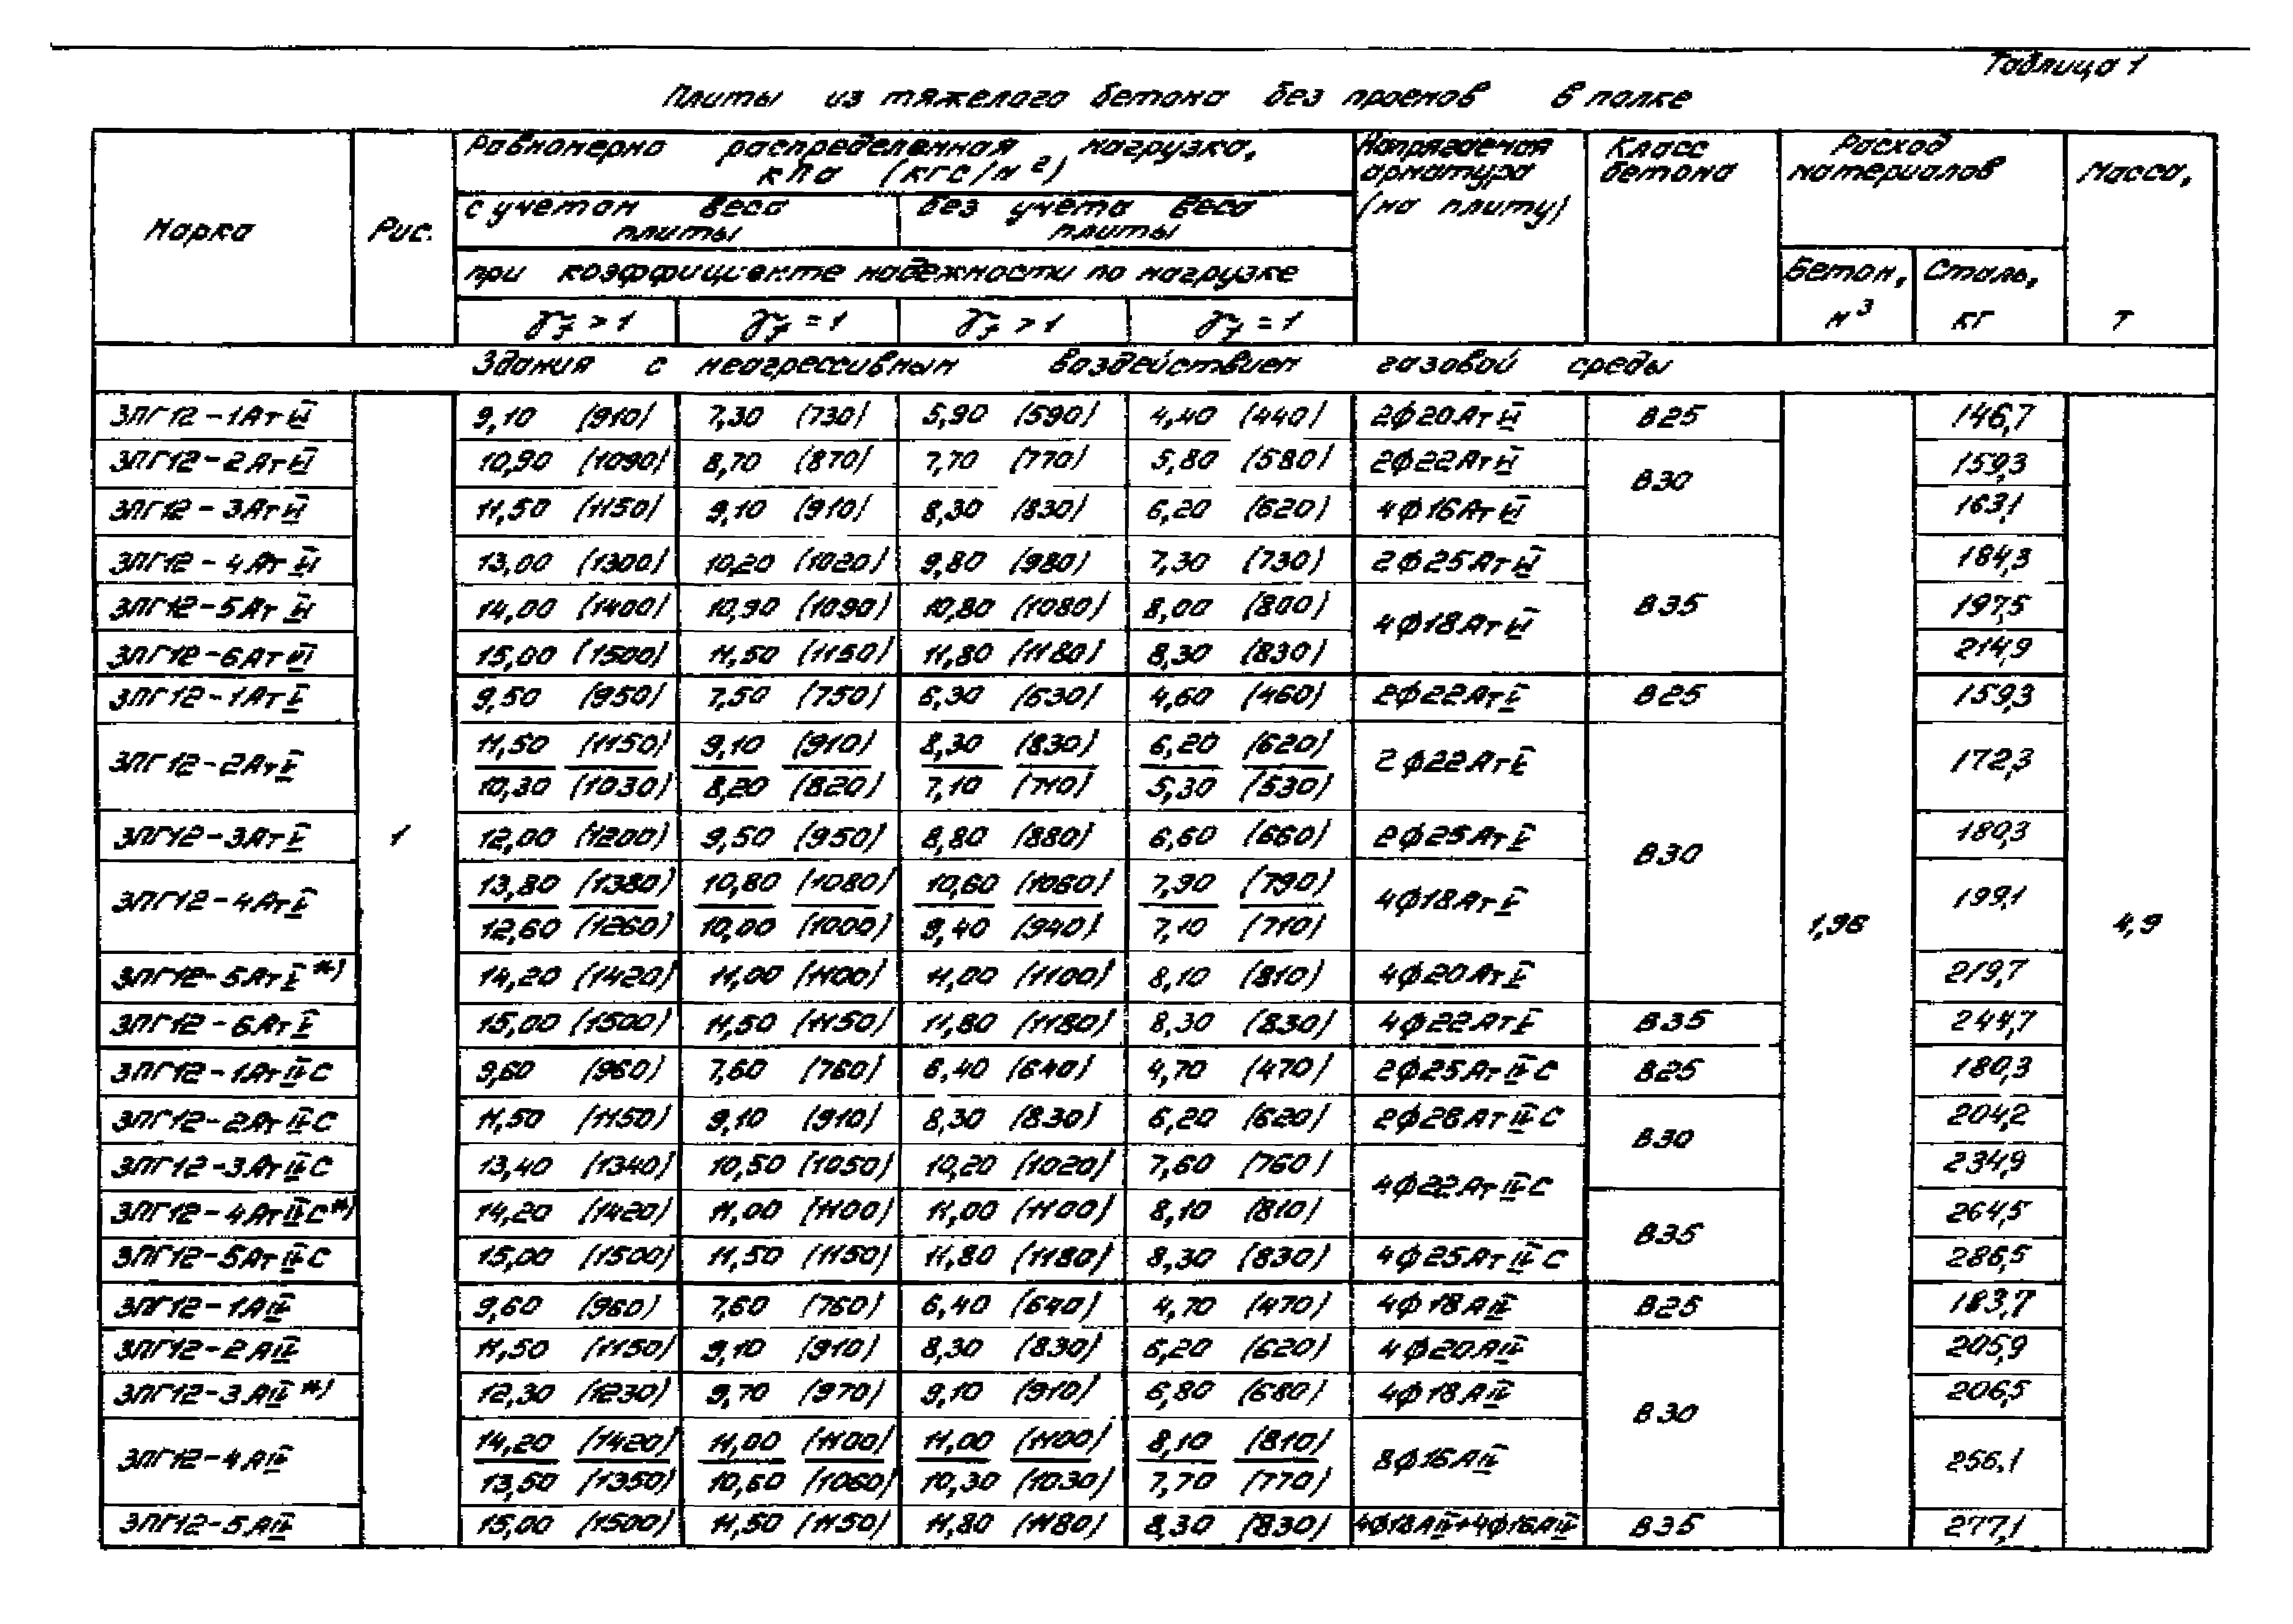 Таблица 1
Плиты из тяжелого бетона без проемов в полке
Марка | Рис. | Равномерно распределенная нагрузка, кПа (кгс/м²) | Напрягаемая арматура (на плиту) | Класс бетона | Расход материалов | Масса, т
с учетом веса плиты | без учета веса плиты
при коэффициенте надежности по нагрузке | Бетон, м³ | Сталь, кг
γf > 1 | γf = 1 | γf > 1 | γf = 1
Здания с неагрессивным воздействием газовой среды
3ПГ12-1АтVI | 9,10 (910) | 7,30 (730) | 5,90 (590) | 4,40 (440) | 2ф20АтVI | В25 | 146,7
3ПГ12-2АтVI | 10,90 (1090) | 8,70 (870) | 7,70 (770) | 5,80 (580) | 2ф22АтVI | В30 | 159,3
3ПГ12-3АтVI | 11,50 (1150) | 9,10 (910) | 8,30 (830) | 6,20 (620) | 4ф16АтVI | 163,1
3ПГ12-4АтVI | 13,00 (1300) | 10,20 (1020) | 9,80 (980) | 7,30 (730) | 2ф25АтVI | В35 | 184,3
3ПГ12-5АтVI | 14,00 (1400) | 10,90 (1090) | 10,80 (1080) | 8,00 (800) | 4ф18АтVI | 197,5
3ПГ12-6АтVI | 15,00 (1500) | 11,50 (1150) | 11,80 (1180) | 8,30 (830) | 214,9
3ПГ12-1АтV | 9,50 (950) | 7,50 (750) | 6,30 (630) | 4,60 (460) | 2ф22АтV | В25 | 159,3
3ПГ12-2АтV | 11,50 (1150) | 9,10 (910) | 8,30 (830) | 6,20 (620) | 2ф22АтV | В30 | 172,3
10,30 (1030) | 8,20 (820) | 7,10 (710) | 5,30 (530)
3ПГ12-3АтV | 1 | 12,00 (1200) | 9,50 (950) | 8,80 (880) | 6,60 (660) | 2ф25АтV | 180,3
3ПГ12-4АтV | 13,80 (1380) | 10,80 (1080) | 10,60 (1060) | 7,90 (790) | 4ф18АтV | 1,96 | 199,1 | 4,9
12,60 (1260) | 10,00 (1000) | 9,40 (940) | 7,10 (710)
3ПГ12-5АтV *) | 14,20 (1420) | 11,00 (1100) | 11,00 (1100) | 8,10 (810) | 4ф20АтV | 219,7
3ПГ12-6АтV | 15,00 (1500) | 11,50 (1150) | 11,80 (1180) | 8,30 (830) | 4ф22АтV | В35 | 244,7
3ПГ12-1АтIVС | 9,60 (960) | 7,60 (760) | 6,40 (640) | 4,70 (470) | 2ф25АтIVС | В25 | 180,3
3ПГ12-2АтIVС | 11,50 (1150) | 9,10 (910) | 8,30 (830) | 6,20 (620) | 2ф28АтIVС | В30 | 204,2
3ПГ12-3АтIVС | 13,40 (1340) | 10,50 (1050) | 10,20 (1020) | 7,60 (760) | 4ф22АтIVС | 234,9
3ПГ12-4АтIVС*) | 14,20 (1420) | 11,00 (1100) | 11,00 (1100) | 8,10 (810) | В35 | 264,5
3ПГ12-5АтIVС | 15,00 (1500) | 11,50 (1150) | 11,80 (1180) | 8,30 (830) | 4ф25АтIVС | 286,5
3ПГ12-1АIV | 9,60 (960) | 7,60 (760) | 6,40 (640) | 4,70 (470) | 4ф18АIV | В25 | 183,7
3ПГ12-2АIV | 11,50 (1150) | 9,10 (910) | 8,30 (830) | 6,20 (620) | 4ф20АIV | В30 | 205,9
3ПГ12-3АIV *) | 12,30 (1230) | 9,70 (970) | 9,10 (910) | 6,80 (680) | 4ф18АIV | 206,5
3ПГ12-4АIV | 14,20 (1420) | 11,00 (1100) | 11,00 (1100) | 8,10 (810) | 8ф16АIV | 256,1
13,50 (1350) | 10,60 (1060) | 10,30 (1030) | 7,70 (770)
3ПГ12-5АIV | 15,00 (1500) | 11,50 (1150) | 11,80 (1180) | 8,30 (830) | 4ф18АIV+4ф16АIV | В35 | 277,1